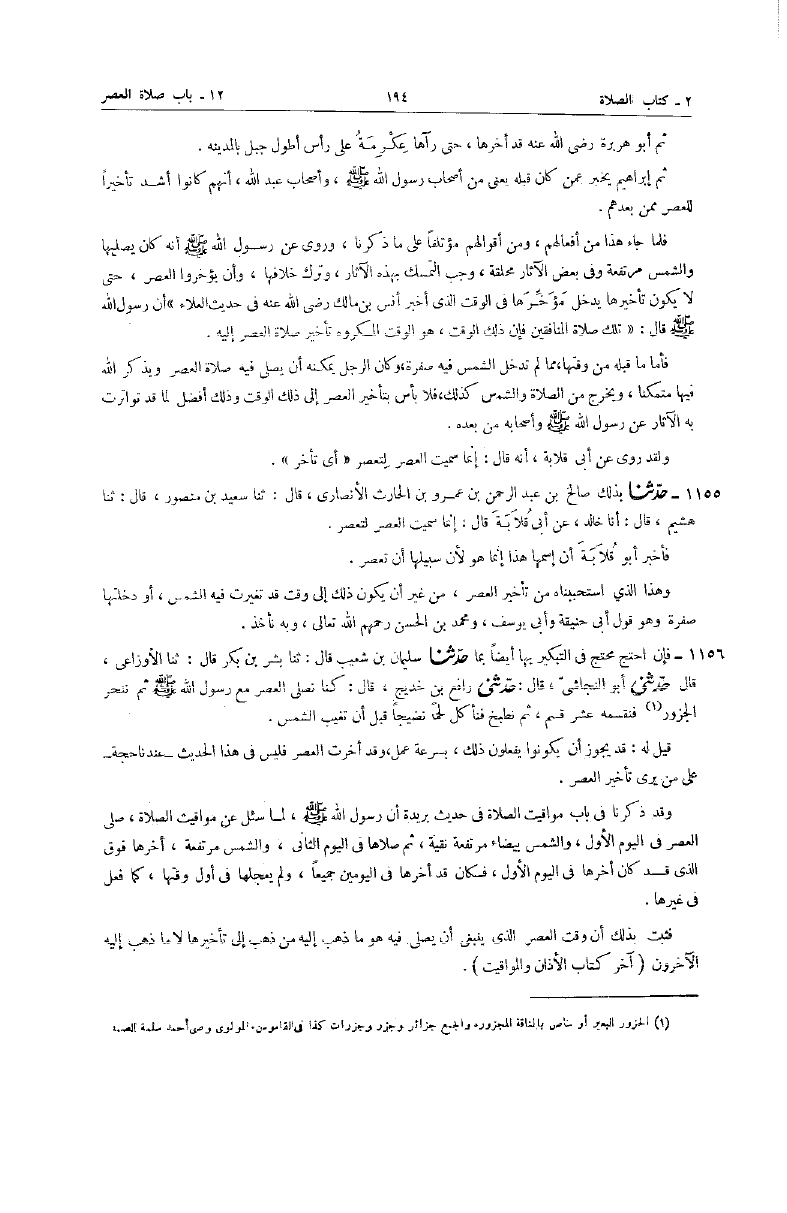 ٢ ـ كتاب الصلاة ١٩٤ ١٢ ـ باب صلاة العصر
ثم أبو هريرة رضى الله عنه قد أخرها ، حتى رآها عِكْرِمَةُ على رأس أطول جبل بالمدينه .
ثم إبراهيم يخبر عمن كان قبله يعنى من أصحاب رسول الله ﷺ ، وأصحاب عبد الله ، أنهم كانوا أشد تأخيراً
للعصر ممن بعدهم .
فلما جاء هذا من أفعالهم ، ومن أقوالهم مؤتلفاً على ما ذكرنا ، وروى عن رسول الله ﷺ أنه كان يصليها
والشمس مرتفعة وفى بعض الآثار محلقة ، وجب التمسك بهذه الآثار ، وترك خلافها ، وأن يؤخروا العصر ، حتى
لا يكون تأخيرها يدخل مُؤَخِّرَها فى الوقت الذى أخبر أنس بن مالك رضى الله عنه فى حديث العلاء »أن رسول الله
ﷺ قال : « تلك صلاة المنافقين فإن ذلك الوقت ، هو الوقت المكروه تأخير صلاة العصر إليه .
فأما ما قبله من وقتها،مما لم تدخل الشمس فيه صفرة،وكان الرجل يمكنه أن يصلى فيه صلاة العصر ويذكر الله
فيها متمكنا ، ويخرج من الصلاة والشمس كذلك،فلا بأس بتأخير العصر إلى ذلك الوقت وذلك أفضل لما قد تواترت
به الآثار عن رسول الله ﷺ وأصحابه من بعده .
ولقد روى عن أبى قلابة ، أنه قال : إنما سميت العصر لِتعصر « أى تأخر » .
١١٥٥ ـ حدّثنا بذلك صالح بن عبد الرحمن بن عمرو بن الحارث الأنصارى ، قال : ثنا سعيد بن منصور ، قال : ثنا
هشيم ، قال : أنا خالد ، عن أبى قُلاَبَةَ قال : إنما سميت العصر لتعصر .
فأخبر أبو قُلاَبَةَ أن إسمها هذا إنما هو لأن سبيلها أن تعصر .
وهذا الذي استحببناه من تأخير العصر ، من غير أن يكون ذلك إلى وقت قد تغيرت فيه الشمس ، أو دخلتها
صفرة وهو قول أبى حنيفة وأبى يوسف ، ومحمد بن الحسن رحمهم الله تعالى ، وبه نأخذ .
١١٥٦ ـ فإن احتج محتج فى التبكير بها أيضاً بما حدّثنا سليمان بن شعيب قال : ثنا بشر بن بكر قال : ثنا الأوزاعى ،
قال حدّثنى أبو النجاشىّ ، قال : حدّثنى رافع بن خديج ، قال : كنا نصلى العصر مع رسول الله ﷺ ثم ننحر
الجزور(١) فنقسمه عشر قسم ، ثم نطبخ فنأكل لحمًا نضيجاً قبل أن تغيب الشمس .
قيل له : قد يجوز أن يكونوا يفعلون ذلك ، بسرعة عمل،وقد أخرت العصر فليس فى هذا الحديث ـ عندنا حجة ـ
على من يرى تأخير العصر .
وقد ذكرنا فى باب مواقيت الصلاة فى حديث بريدة أن رسول الله ﷺ ، لما سئل عن مواقيت الصلاة ، صلى
العصر فى اليوم الأول ، والشمس بيضاء مرتفعة نقية ، ثم صلاها فى اليوم الثانى ، والشمس مرتفعة ، أخرها فوق
الذى قد كان أخرها فى اليوم الأول ، فكان قد أخرها فى اليومين جميعاً ، ولم يعجلها فى أول وقتها ، كما فعل
فى غيرها .
فثبت بذلك أن وقت العصر الذى ينبغى أن يصلى فيه هو ما ذهب إليه من ذهب إلى تأخيرها لا ما ذهب إليه
الآخرون ( آخر كتاب الأذان والمواقيت ) .
(١) الجزور البعير أو خاص بالناقة المجزورة والجمع جزائر وجزر وجزرات كذا فى القاموس.المولوى وصى أحمد سلمة الصمد